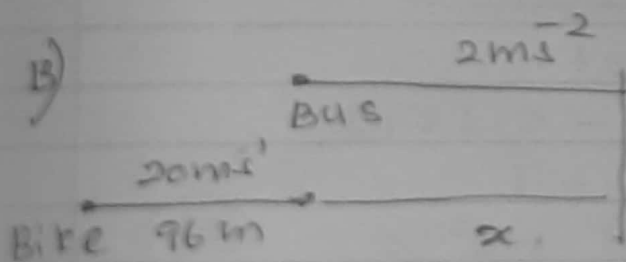 B) 2ms⁻²
Bus
20ms'
Bike 96m x